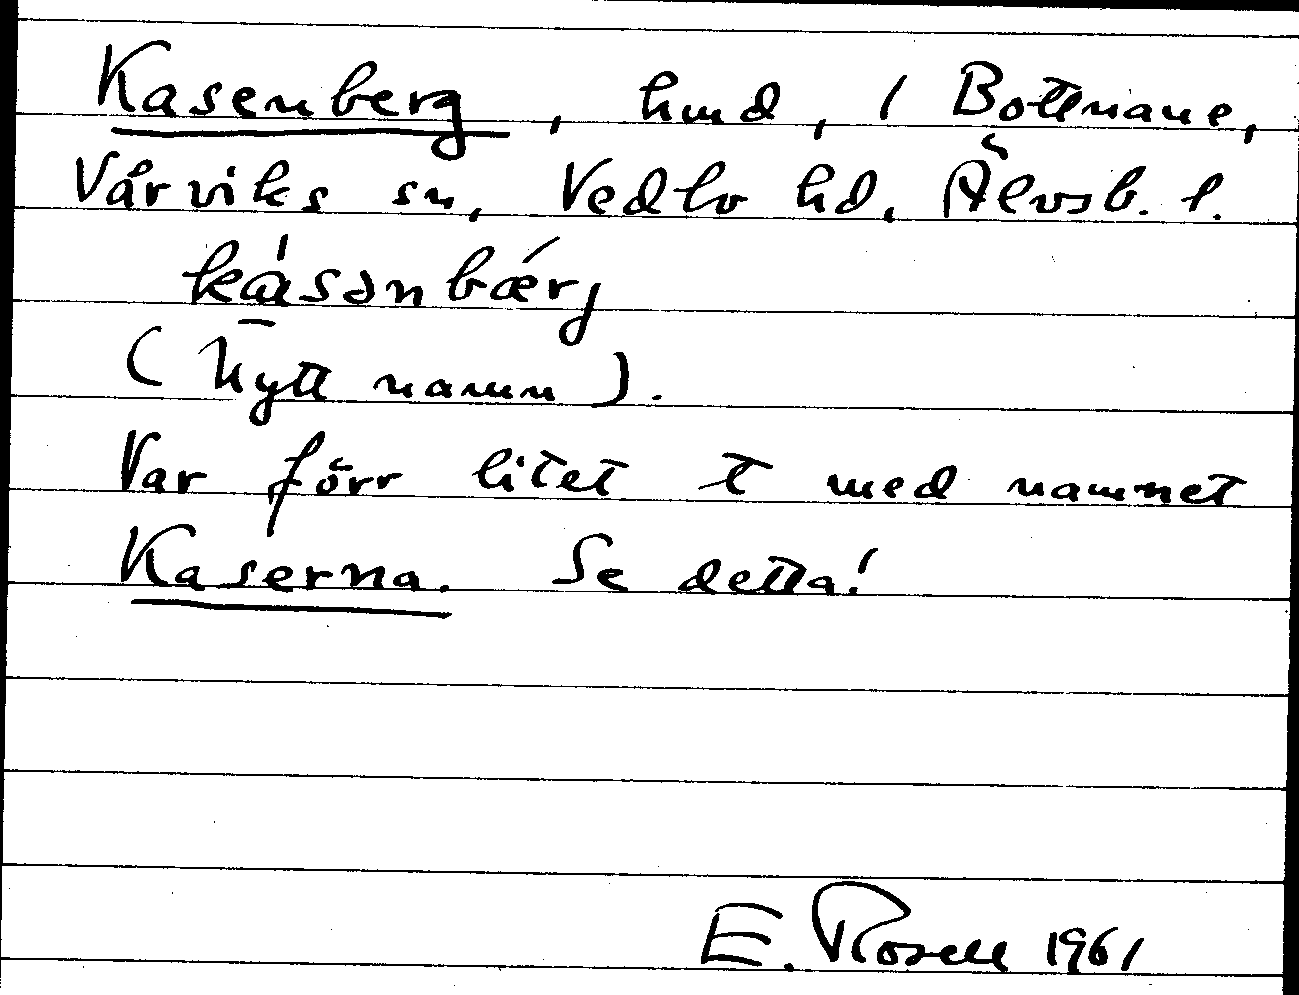 Kasenberg, hmd, 1 Bottnane,
Vårviks sn, Vedbo hd. Älvsb. l.
ká̱sənbǽrj
(Nytt namn).
Var förr litet t med namnet
Kaserna. Se detta!
E. Rosell 1961